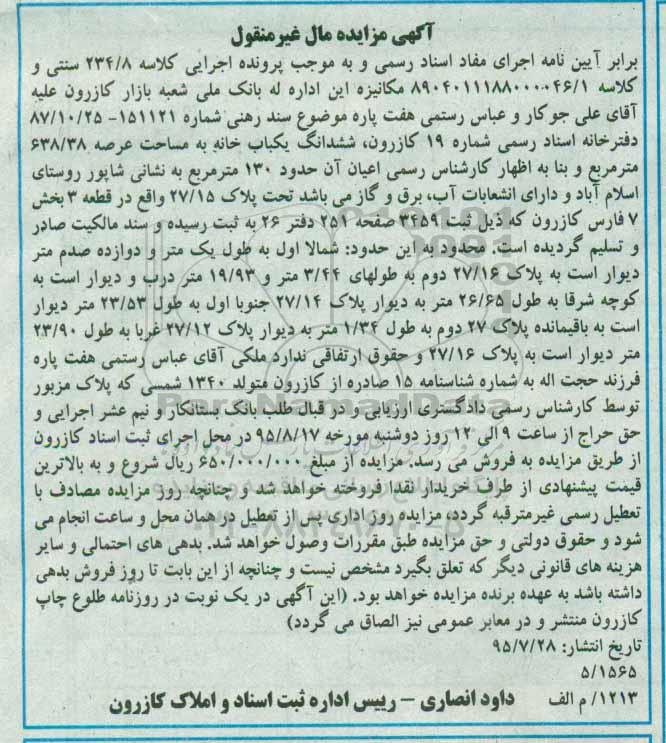 آگهی مزایده مال غیرمنقول
برابر آیین نامه اجرای مفاد اسناد رسمی و به موجب پرونده اجرایی کلاسه ۲۳۴/۸ سنتی و
کلاسه ۸۹۰۴۰۱۱۱۸۸۰۰۰۰۴۶/۱ مکانیزه این اداره له بانک ملی شعبه بازار کازرون علیه
آقای علی جوکار و عباس رستمی هفت پاره موضوع سند رهنی شماره ۱۵۱۱۲۱- ۸۷/۱۰/۲۵
دفترخانه اسناد رسمی شماره ۱۹ کازرون، ششدانگ یکباب خانه به مساحت عرصه ۶۳۸/۳۸
مترمربع و بنا به اظهار کارشناس رسمی اعیان آن حدود ۱۳۰ مترمربع به نشانی شاپور روستای
اسلام آباد و دارای انشعابات آب، برق و گاز می باشد تحت پلاک ۲۷/۱۵ واقع در قطعه ۳ بخش
۷ فارس کازرون که ذیل ثبت ۳۴۵۹ صفحه ۲۵۱ دفتر ۲۶ به ثبت رسیده و سند مالکیت صادر
و تسلیم گردیده است. محدود به این حدود: شمالا اول به طول یک متر و دوازده صدم متر
دیوار است به پلاک ۲۷/۱۶ دوم به طولهای ۳/۴۴ متر و ۱۹/۹۳ متر درب و دیوار است به
کوچه شرقا به طول ۲۶/۶۵ متر به دیوار پلاک ۲۷/۱۴ جنوبا اول به طول ۲۳/۵۳ متر دیوار
است به باقیمانده پلاک ۲۷ دوم به طول ۱/۳۴ متر به دیوار پلاک ۲۷/۱۲ غربا به طول ۲۳/۹۰
متر دیوار است به پلاک ۲۷/۱۶ و حقوق ارتفاقی ندارد ملکی آقای عباس رستمی هفت پاره
فرزند حجت اله به شماره شناسنامه ۱۵ صادره از کازرون متولد ۱۳۴۰ شمسی که پلاک مزبور
توسط کارشناس رسمی دادگستری ارزیابی و در قبال طلب بانک بستانکار و نیم عشر اجرایی و
حق حراج از ساعت ۹ الی ۱۲ روز دوشنبه مورخه ۹۵/۸/۱۷ در محل اجرای ثبت اسناد کازرون
از طریق مزایده به فروش می رسد. مزایده از مبلغ ۶۵۰/۰۰۰/۰۰۰ ریال شروع و به بالاترین
قیمت پیشنهادی از طرف خریدار نقدا فروخته خواهد شد و چنانچه روز مزایده مصادف با
تعطیل رسمی غیرمترقبه گردد، مزایده روز اداری پس از تعطیل در همان محل و ساعت انجام می
شود و حقوق دولتی و حق مزایده طبق مقررات وصول خواهد شد. بدهی های احتمالی و سایر
هزینه های قانونی دیگر که تعلق بگیرد مشخص نیست و چنانچه از این بابت تا روز فروش بدهی
داشته باشد به عهده برنده مزایده خواهد بود. (این آگهی در یک نوبت در روزنامه طلوع چاپ
کازرون منتشر و در معابر عمومی نیز الصاق می گردد)
تاریخ انتشار: ۹۵/۷/۲۸
۵/۱۵۶۵
۱۲۱۳/ م الف داود انصاری – رییس اداره ثبت اسناد و املاک کازرون
ParsNamadData